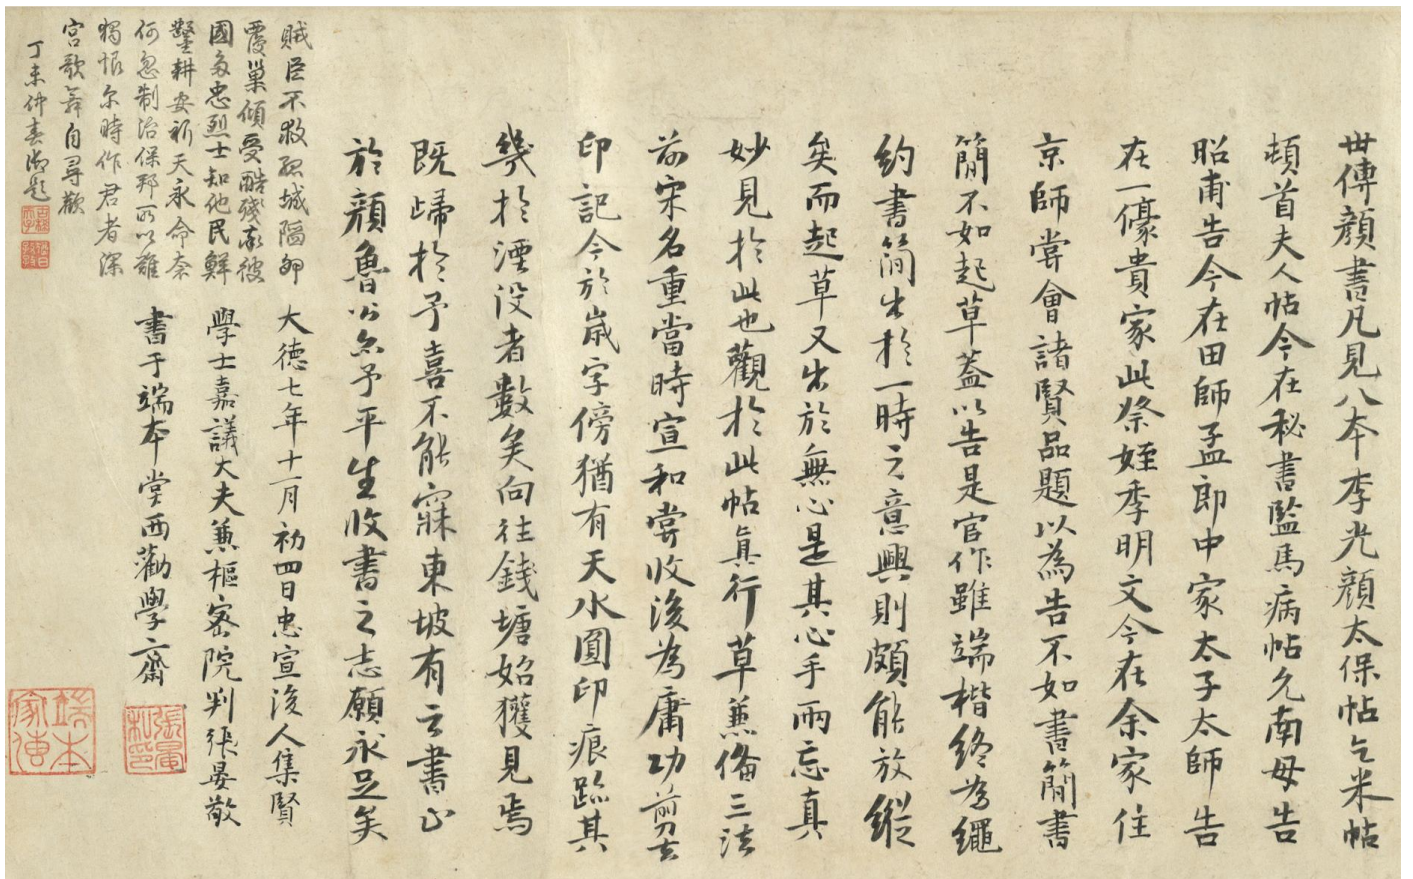 世傳顏書凡見八本李光顏太保帖乞米帖
頓首夫人帖今在秘書監馬病帖允南母告
昭甫告今在田師孟郎中家太子太師告
在一豪貴家此祭姪季明文今在余家住
京師嘗會諸賢品題以為告不如書簡書
簡不如起草蓋以告是官作雖端楷終為繩
約書簡出於一時之意興則頗能放縱
矣而起草又出於無心是其心手兩忘真
妙見於此也觀於此帖真行草兼備三法
前宋名重當時宣和嘗收後為庸功剪去
印記今於嵗字傍猶有天水圓印痕跡其
幾於湮没者數矣向往錢塘始獲見焉
既歸於予喜不能寐東坡有云書止
於顏魯公亦予平生收書之志願永足矣
大德七年十一月初四日忠宣後人集賢
學士嘉議大夫兼樞密院判張晏敬
書于端本堂西勸學齋
張晏私印
端本家傳
賊臣不救孤城隔卵
覆巢傾受酷殘彼
國多忠烈士知他民鮮
鑿耕安祈天永命奈
何忽制治保邦所以難
獨恨尔時作君者深
宮歌舞自尋歡
丁未仲春御題